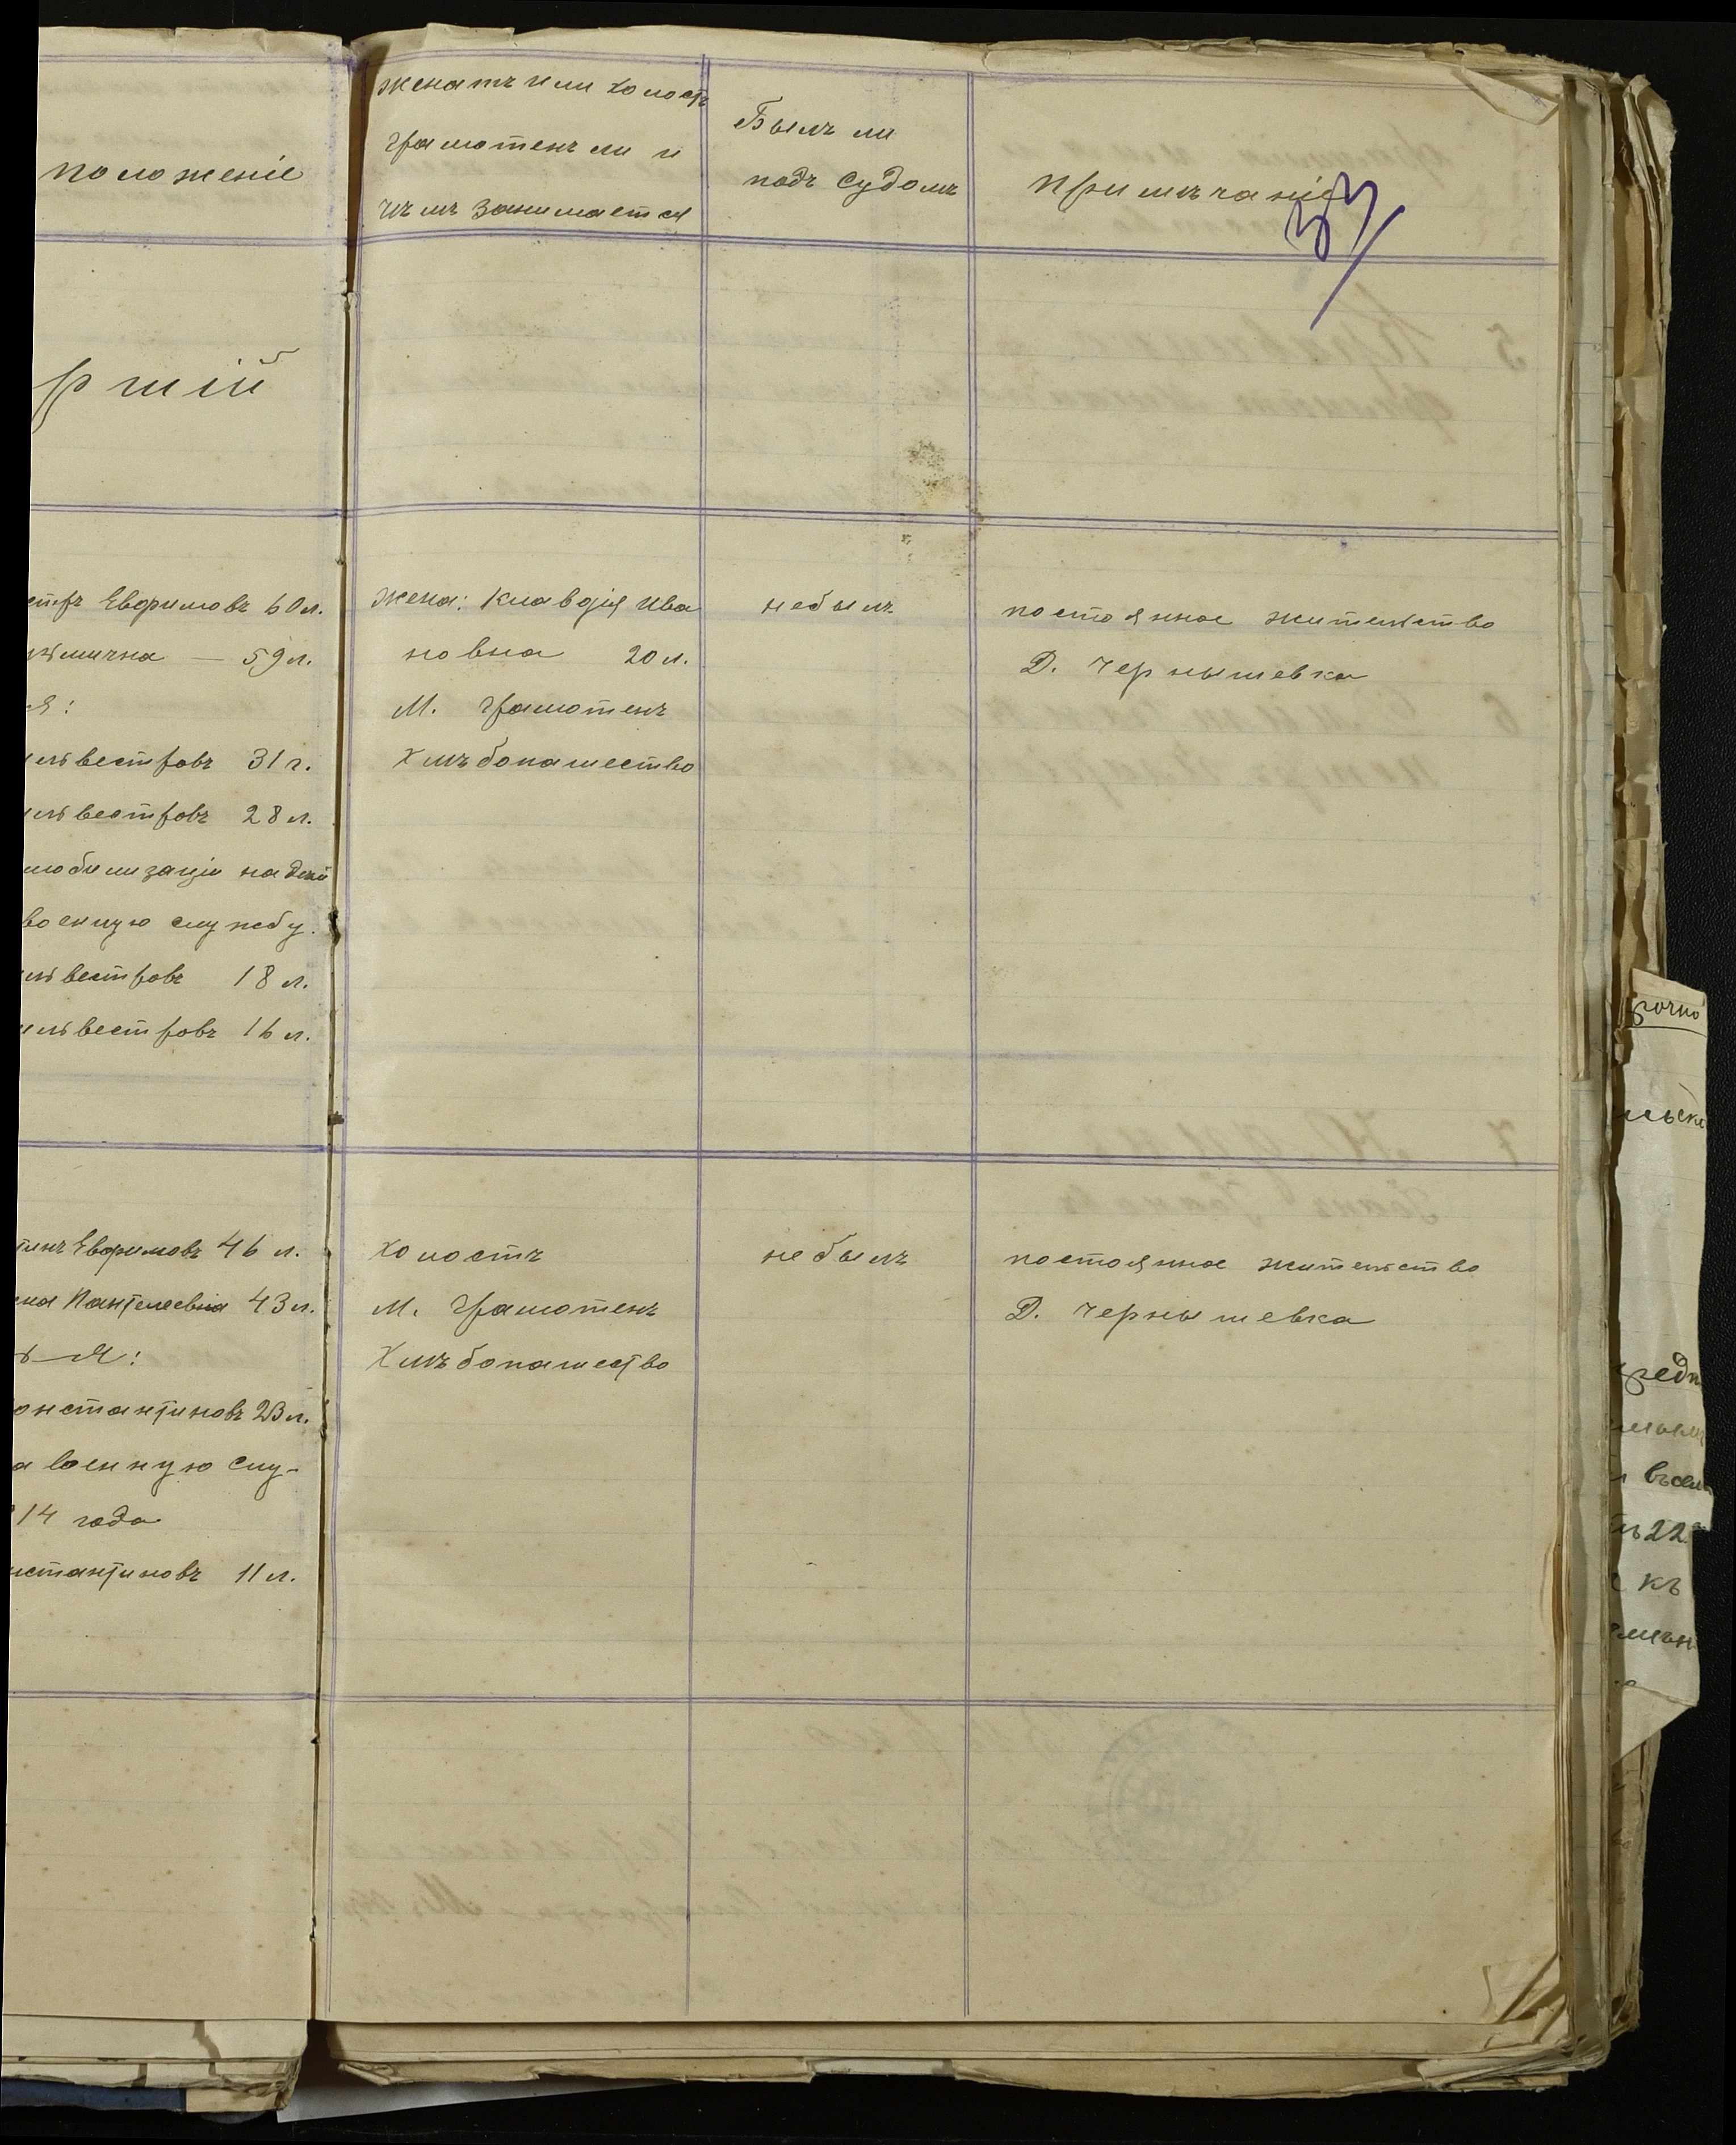 положеніе
женатъ или холостъ
грамотенъ ли и
чѣмъ занимается
Былъ ли
подъ судомъ
примѣчаніе
33
ршій
Евфимовъ 60 л.
59 л.
31 г.
28 л.
мобилизаціи на дѣй
военную службу.
18 л.
16 л.
жена: Клавдія Ива
новна 20 л.
М. грамотенъ
Хлѣбопашество
небылъ
постоянное жительство
Д. Чернышевка
Евфимовъ 46 л.
Пантелеевна 43 л.
онстантиновъ 23 л.
а военную слу-
14 года
нстантиновъ 11 л.
холостъ
М. грамотенъ
Хлѣбопашество
небылъ
постоянное жительство
Д. Чернышевка
22
къ